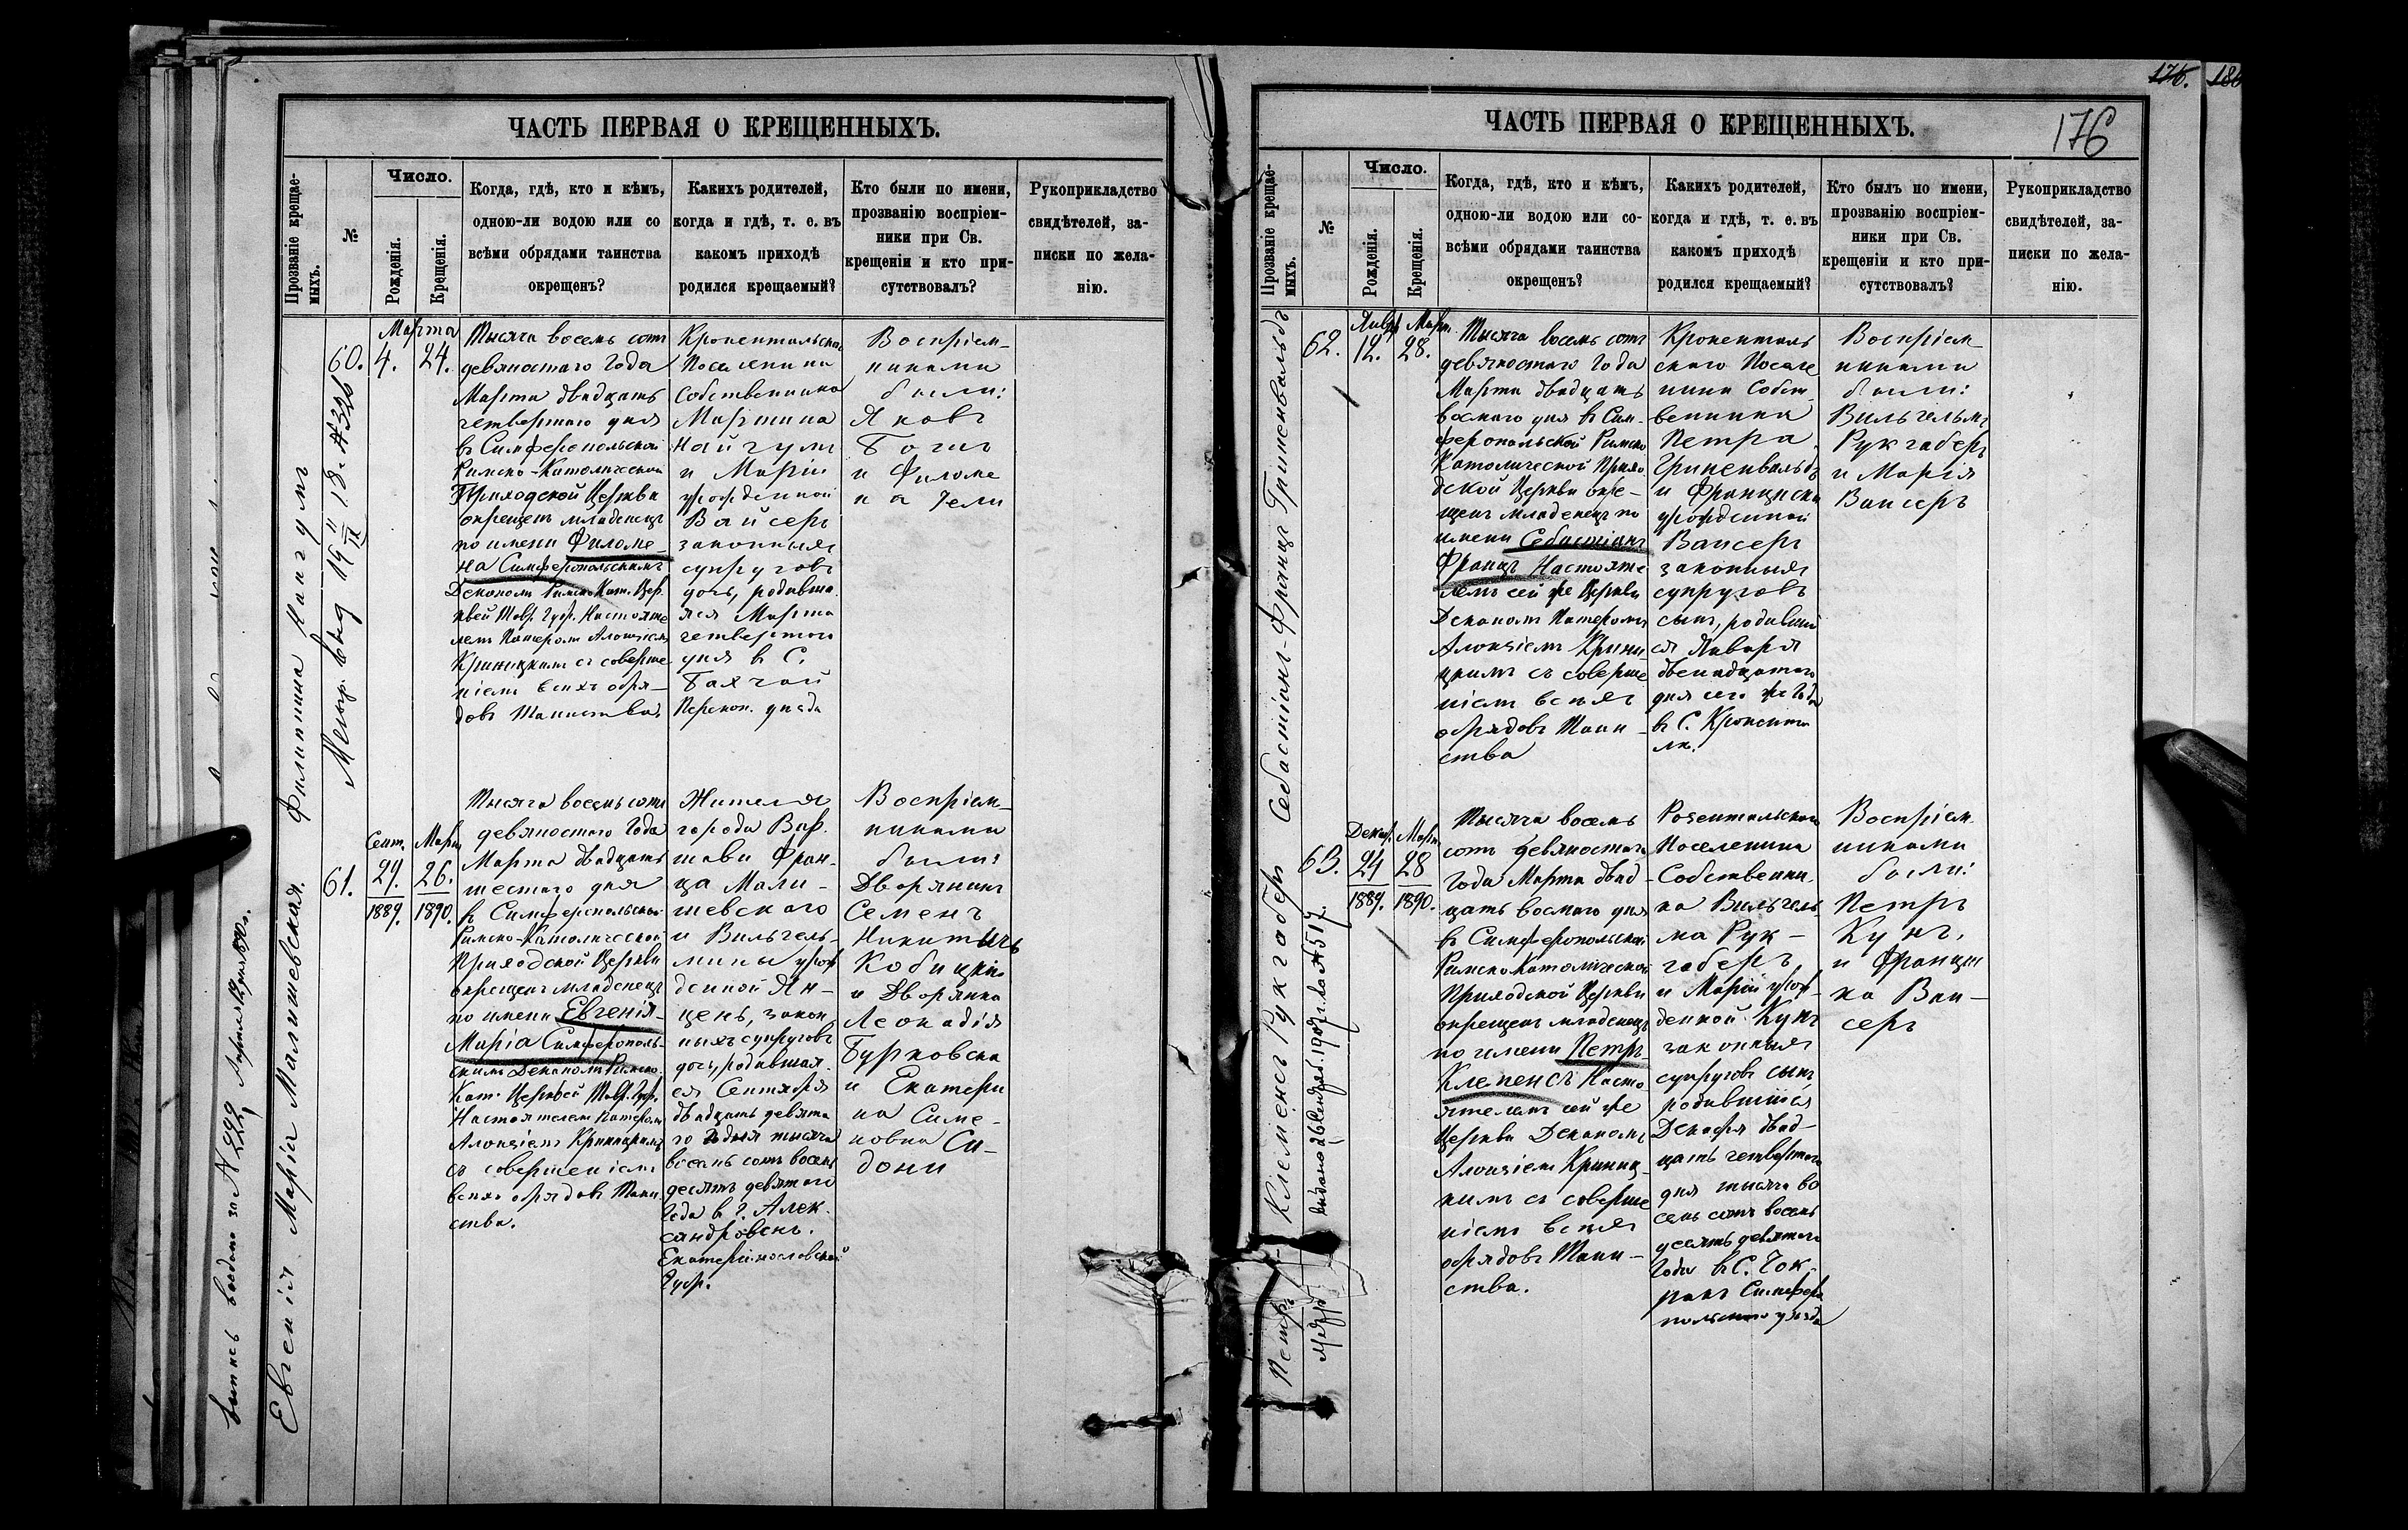 ЧАСТЬ ПЕРВАЯ О КРЕЩЕННЫХЪ.
Прозваніе крещае-
мыхъ.
№
Число.
Рожденія.
Крещенія.
Когда, гдѣ, кто и кѣмъ,
одною-ли водою или со
всѣми обрядами таинства
окрещенъ?
Какихъ родителей,
когда и гдѣ, т. е. въ
какомъ приходѣ
родился крещаемый?
Кто были по имени,
прозванію воспріем-
ники при Св.
крещеніи и кто при-
сутствовалъ?
Рукоприкладство
свидѣтелей, за-
писки по жела-
нію.
60.
Марта
4. 24.
Тысяча восемь сотъ
девяностаго Года
Марта двадцать
четвертаго дня
въ Симферопольской
Римско-Католической
Приходской Церкви
окрещенъ младенецъ
по имени Филоме_
на Симферопольскимъ
Деканомъ Римско Кат. Цер.
квей Тавр. Губ. Настояте
лемъ Патеромъ Алоизіемъ
Криницкимъ съ соверше
ніемъ всѣхъ обря_
довъ Таинства,
Кронентальскаго
Поселенина
Собственника
Мартина
и Маріи
урожденной
Вайсеръ
законныхъ
супруговъ
дочь, родивша
яся Марта
четвертаго
дня въ С.
Бахчай
Перекоп. уѣзда
Воспріем_
никами
были:
Яковъ
и Филоме
на
61.
Сент. Март
29. 26.
1889. 1890.
Евгенія Марія Малишевская.
Тысяча восемь сотъ
девяностаго Года
Марта двадцать
шестаго дня
въ Симферопольской
Римско-Католической
Приходской Церкви
окрещенъ младенецъ
по имени Евгенія-
Марія Симферополь-
скимъ Деканомъ Римско.
Кат. Церквей Тавр. Губ.
Настоятелемъ Патеромъ
Алоизіемъ Криницкимъ
съ совершеніемъ
всѣхъ обрядовъ Таин.
ства.
Жителя
города Вар.
шавы Фран_
ца Мали_
шевскаго
и Вильгель_
мины урож
денной Ян_
ценъ, закон
ныхъ супруговъ
дочь, родившая.
ся Сентября
двадцать девята
го дня тысяча
восемь сотъ восемь
десятъ девятаго
Года въ г. Алек_
сандровскъ.
Екатеринославской
Губ.
Воспріем_
никами
были:
Дворянинъ
Семенъ
Никитичъ
и Дворянка
Леокадія
Бурковска
и Екатери
на Симе_
новна Си_
дони
ЧАСТЬ ПЕРВАЯ О КРЕЩЕННЫХЪ.
176
176.
Прозваніе крещае-
мыхъ.
№
Число.
Рожденія.
Крещенія.
Когда, гдѣ, кто и кѣмъ,
одною-ли водою или со-
всѣми обрядами таинства
окрещенъ?
Какихъ родителей,
когда и гдѣ, т. е. въ
какомъ приходѣ
родился крещаемый?
Кто былъ по имени,
прозванію воспріем-
ники при Св.
крещеніи и кто при-
сутствовалъ?
Рукоприкладство
свидѣтелей, за-
писки по жела-
нію.
62.
Янв. Март.
12. 28.
Себастіанъ-Францъ Гриненвальдъ
Тысяча восемь сотъ
девяностаго Года
Марта двадцать
восмаго дня въ Сим_
феропольской Римско
Католической Прихо
дской Церкви окре_
щенъ младенецъ по
имени Себастіанъ
Францъ Настояте
лемъ сей же Церкви
Деканомъ Патеромъ
Алоизіемъ Крини
цкимъ съ соверше
ніемъ всѣхъ
обрядовъ Таин_
ства
Кроненталь
скаго Поселе
нина Собст_
венника
Петра
Гриненвальдъ
и Франциски
урожденной
Вансеръ
законныхъ
супруговъ
сынъ, родивші
ся Января
двенадцатаго
дня сего же Года
въ С. Кронента
лѣ.
Воспріем_
никами
были:
Вильгельмъ
Рукгаберъ
и Марія
Вансеръ
63.
Декаб. Март.
24 28
1889. 1890.
Петръ Клеменсъ Рукгаберъ
Тысяча восемь
сотъ девяностаго
Года Марта двад_
цать восмаго дня
въ Симферопольской
Римско Католической
Приходской Церкви
окрещенъ младенецъ
по имени Петръ_
Клеменсъ Насто
ятелемъ сей же
Церкви Деканомъ
Алоизіемъ Криниц_
кимъ съ соверше
ніемъ всѣхъ
обрядовъ Таин_
ства.
Розентальскаго
Поселенина
Собственни_
ка Вильгель
ма Рук_
габеръ,
и Маріи урож_
денной Кунъ
законныхъ
супруговъ сынъ
родившійся
Декабря двад_
цать четвертаго
дня тысяча во
семь сотъ восемь
десятъ девятаго
Года въ С. Чок_
ракъ Симферо
польскаго уѣзда
Воспріем_
никами
были:
Петръ
Кунъ,
и Францис
ка Ван_
серъ